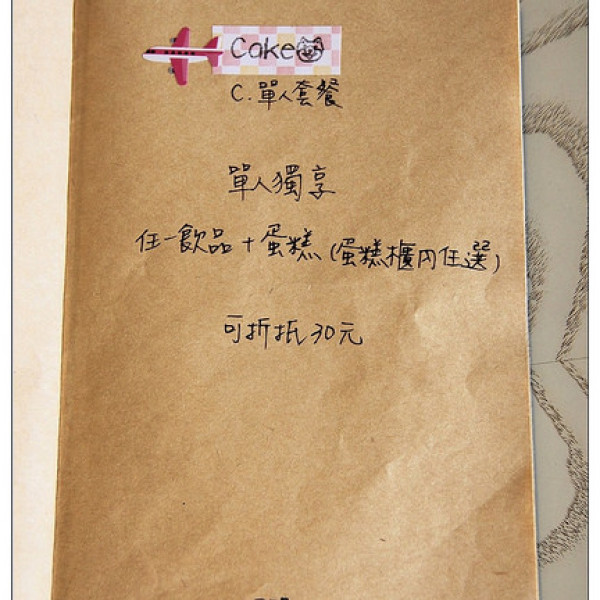 Cake
C.單人套餐
單人獨享
任一飲品+蛋糕(蛋糕櫃內任選)
可折抵30元